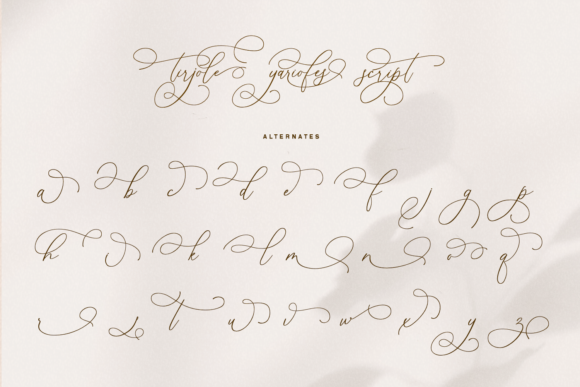 tirjole yariofes script
ALTERNATES
a b c d e f j g p
h i k l m n o q
r s t u v w x y z